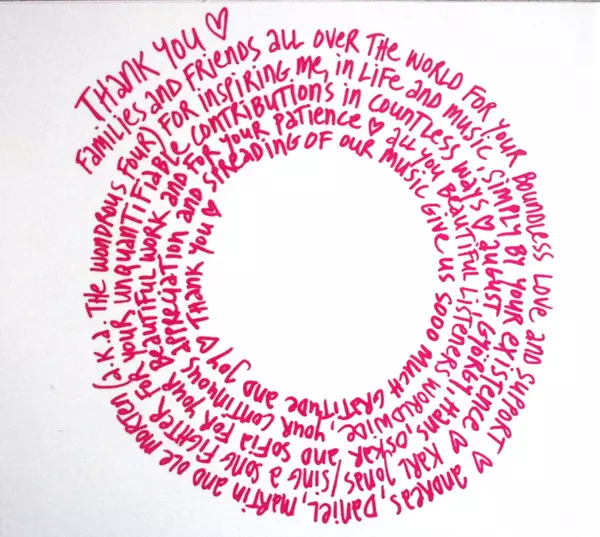 THANK YOU ♡
FAMILIES AND FRIENDS ALL OVER THE WORLD FOR YOUR BOUNDLESS LOVE AND SUPPORT ♡ ANDREAS, DANIEL, MARTIN AND OLE MORTEN (A.K.A. THE WONDROUS FOUR) FOR INSPIRING ME, IN LIFE AND MUSIC, SIMPLY BY YOUR EXISTENCE ♡ KARL JONAS/SING A SONG FIGHTER FOR YOUR UNQUANTIFIABLE CONTRIBUTIONS IN COUNTLESS WAYS ♡ AUGUST GYÖRGY, HANS, OSKAR AND SOFIA FOR YOUR BEAUTIFUL WORK AND FOR YOUR PATIENCE ♡ ALL YOU BEAUTIFUL LISTENERS WORLDWIDE, YOUR CONTINUOUS APPRECIATION AND SPREADING OF OUR MUSIC GIVE US SOOO MUCH GRATITUDE AND JOY ♡ THANK YOU ♡